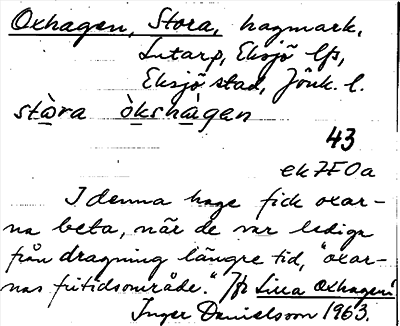 Oxhagen, Stora, hagmark,
Lutarp, Eksjö lfs,
Eksjö stad, Jönk. l.
stò̲ra ò̲kshà̲gan
43
ek7F0a
I denna hage fick oxar-
na beta, när de var lediga
från dragning längre tid, "oxar-
nas fritidsområde." Jfr Lilla Oxhagen!
Inger Danielsson 1963.